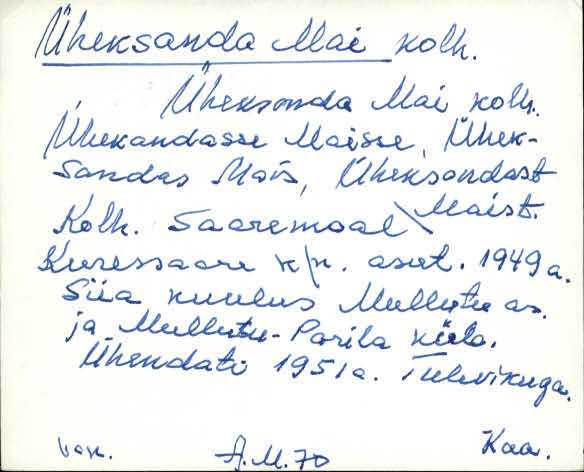 Üheksanda Mai kolh.
Üheksanda Mai kolh.
Ühekandasse Maisse, Ühek-
sandas Mais, Üheksandast
Maist.
Kolh. Saaremaal
Kuressaare k/n. asut. 1949 a.
Siia kuulus Mullutu as.
ja Mullutu-Parila küla.
Ühendati 1951 a. Tulevikuga.
A.M. 70
Kaa.